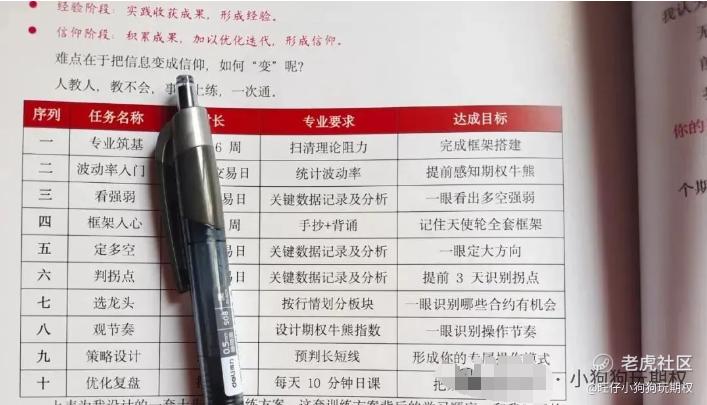 • 经验阶段：实践收获成果，形成经验。
• 信仰阶段：积累成果，加以优化迭代，形成信仰。
难点在于把信息变成信仰，如何“变”呢？
人教人，教不会，事 上练，一次通。
序列 任务名称 长 专业要求 达成目标
一 专业筑基 6 周 扫清理论阻力 完成框架搭建
二 波动率入门 交易日 统计波动率 提前感知期权牛熊
三 看强弱 易日 关键数据记录及分析 一眼看出多空强弱
四 框架入心 周 手抄+背诵 记住天使轮全套框架
五 定多空 易日 关键数据记录及分析 一眼定大方向
六 判拐点 易日 关键数据记录及分析 提前 3 天识别拐点
七 选龙头 按行情划分板块 一眼识别哪些合约有机会
八 观节奏 设计期权牛熊指数 一眼识别操作节奏
九 策略设计 预判长短线 形成你的专属操作模式
十 优化复盘 每天 10 分钟日课 把
我认为
你的
个期
0.5mm
deli
老虎社区
小狗狗玩期权
@旺仔小狗狗玩期权